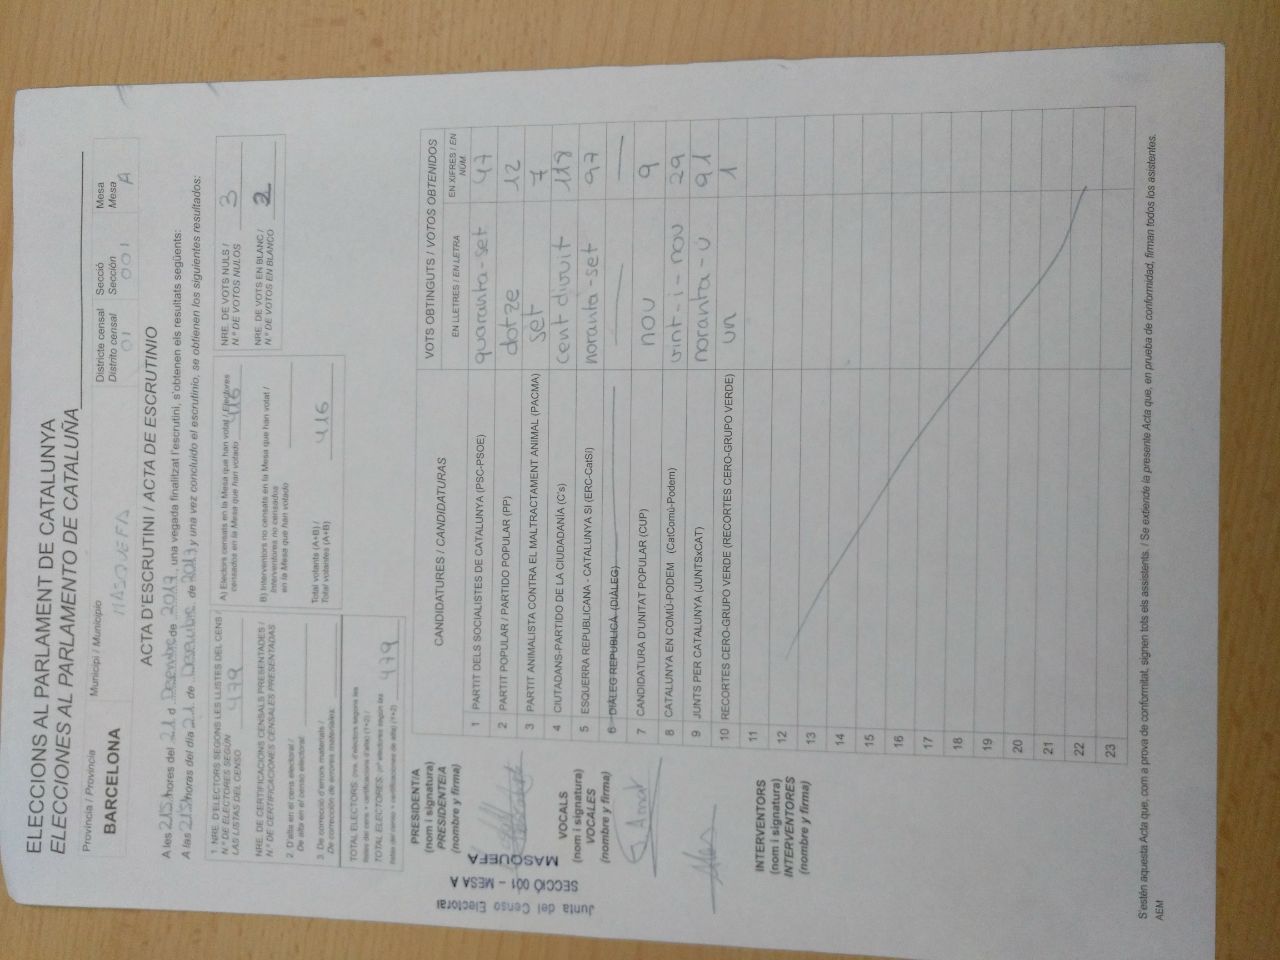 ELECCIONS AL PARLAMENT DE CATALUNYA
ELECCIONES AL PARLAMENTO DE CATALUÑA
Província / Provincia
BARCELONA
Municipi / Municipio
MASQUEFA
Districte censal
Distrito censal
01
Secció
Sección
001
Mesa
Mesa
A
ACTA D'ESCRUTINI / ACTA DE ESCRUTINIO
A les 21'5 hores del 21 d Desembre de 2017, una vegada finalitzat l'escrutini, s'obtenen els resultats següents:
A las 21'5 horas del día 21 de Desembre de 2017 y una vez concluido el escrutinio, se obtienen los siguientes resultados:
1. NRE. D'ELECTORS SEGONS LES LLISTES DEL CENS /
N.º DE ELECTORES SEGÚN
LAS LISTAS DEL CENSO 479
NRE. DE CERTIFICACIONS CENSALS PRESENTADES /
N.º DE CERTIFICACIONES CENSALES PRESENTADAS
2. D'alta en el cens electoral /
De alta en el censo electoral:
3. De correcció d'errors materials /
De corrección de errores materiales:
TOTAL ELECTORS: (nre. d'electors segons les
llistes del cens + certificacions d'alta) (1+2) /
TOTAL ELECTORES: (nº electores según las
listas del censo + certificaciones de alta) (1+2) 479
A) Electors censats en la Mesa que han votat / Electores
censados en la Mesa que han votado 416
B) Interventors no censats en la Mesa que han votat /
Interventores no censados
en la Mesa que han votado
Total votants (A+B) /
Total votantes (A+B) 416
NRE. DE VOTS NULS /
N.º DE VOTOS NULOS 3
NRE. DE VOTS EN BLANC /
N.º DE VOTOS EN BLANCO 2
PRESIDENT/A
(nom i signatura)
PRESIDENTE/A
(nombre y firma)
Junta del Censo Electoral
SECCIÓ 001 - MESA A
MASQUEFA
VOCALS
(nom i signatura)
VOCALES
(nombre y firma)
G. Amat
INTERVENTORS
(nom i signatura)
INTERVENTORES
(nombre y firma)
CANDIDATURES / CANDIDATURAS
VOTS OBTINGUTS / VOTOS OBTENIDOS
EN LLETRES / EN LETRA
EN XIFRES / EN NÚM.
1 PARTIT DELS SOCIALISTES DE CATALUNYA (PSC-PSOE) quaranta-set 47
2 PARTIT POPULAR / PARTIDO POPULAR (PP) dotze 12
3 PARTIT ANIMALISTA CONTRA EL MALTRACTAMENT ANIMAL (PACMA) set 7
4 CIUTADANS-PARTIDO DE LA CIUDADANÍA (C's) cent divuit 118
5 ESQUERRA REPUBLICANA - CATALUNYA SÍ (ERC-CatSí) noranta-set 97
6 DIÀLEG REPUBLICÀ (DIÀLEG)
7 CANDIDATURA D'UNITAT POPULAR (CUP) nou 9
8 CATALUNYA EN COMÚ-PODEM (CatComú-Podem) vint-i-nou 29
9 JUNTS PER CATALUNYA (JUNTSxCAT) noranta-ú 91
10 RECORTES CERO-GRUPO VERDE (RECORTES CERO-GRUPO VERDE) un 1
11
12
13
14
15
16
17
18
19
20
21
22
23
S'estén aquesta Acta que, com a prova de conformitat, signen tots els assistents. / Se extiende la presente Acta que, en prueba de conformidad, firman todos los asistentes.
AEM